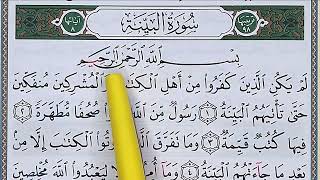 آياتها ٨ سُورَةُ الْبَيِّنَةِ ٩٨
بِسْمِ اللَّهِ الرَّحْمَٰنِ الرَّحِيمِ
لَمْ يَكُنِ الَّذِينَ كَفَرُوا مِنْ أَهْلِ الْكِتَٰبِ الْمُشْرِكِينَ مُنفَكِّينَ
حَتَّىٰ تَأْتِيَهُمُ الْبَيِّنَةُ ١ رَسُولٌ مِّنَ اللَّهِ صُحُفًا مُّطَهَّرَةً ٢
فِيهَا كُتُبٌ قَيِّمَةٌ ٣ وَمَا تَفَرَّقَ أُوتُوا الْكِتَٰبَ إِلَّا مِن
بَعْدِ مَا جَآءَتْهُمُ الْبَيِّنَةُ ٤ وَمَآ لِيَعْبُدُوا اللَّهَ مُخْلِصِينَ